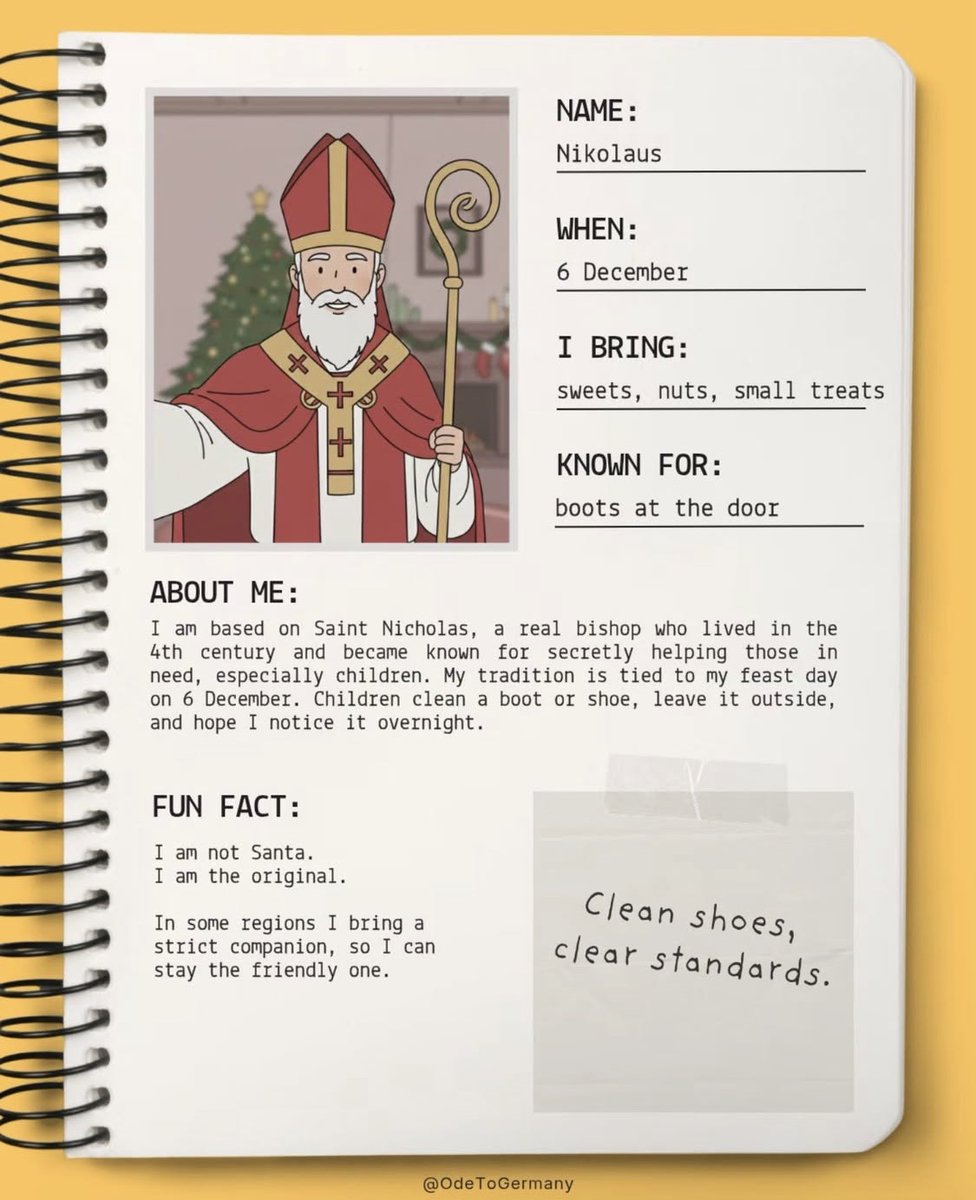 NAME:
Nikolaus
WHEN:
6 December
I BRING:
sweets, nuts, small treats
KNOWN FOR:
boots at the door
ABOUT ME:
I am based on Saint Nicholas, a real bishop who lived in the
4th century and became known for secretly helping those in
need, especially children. My tradition is tied to my feast day
on 6 December. Children clean a boot or shoe, leave it outside,
and hope I notice it overnight.
FUN FACT:
I am not Santa.
I am the original.
In some regions I bring a
strict companion, so I can
stay the friendly one.
Clean shoes,
clear standards.
@OdeToGermany